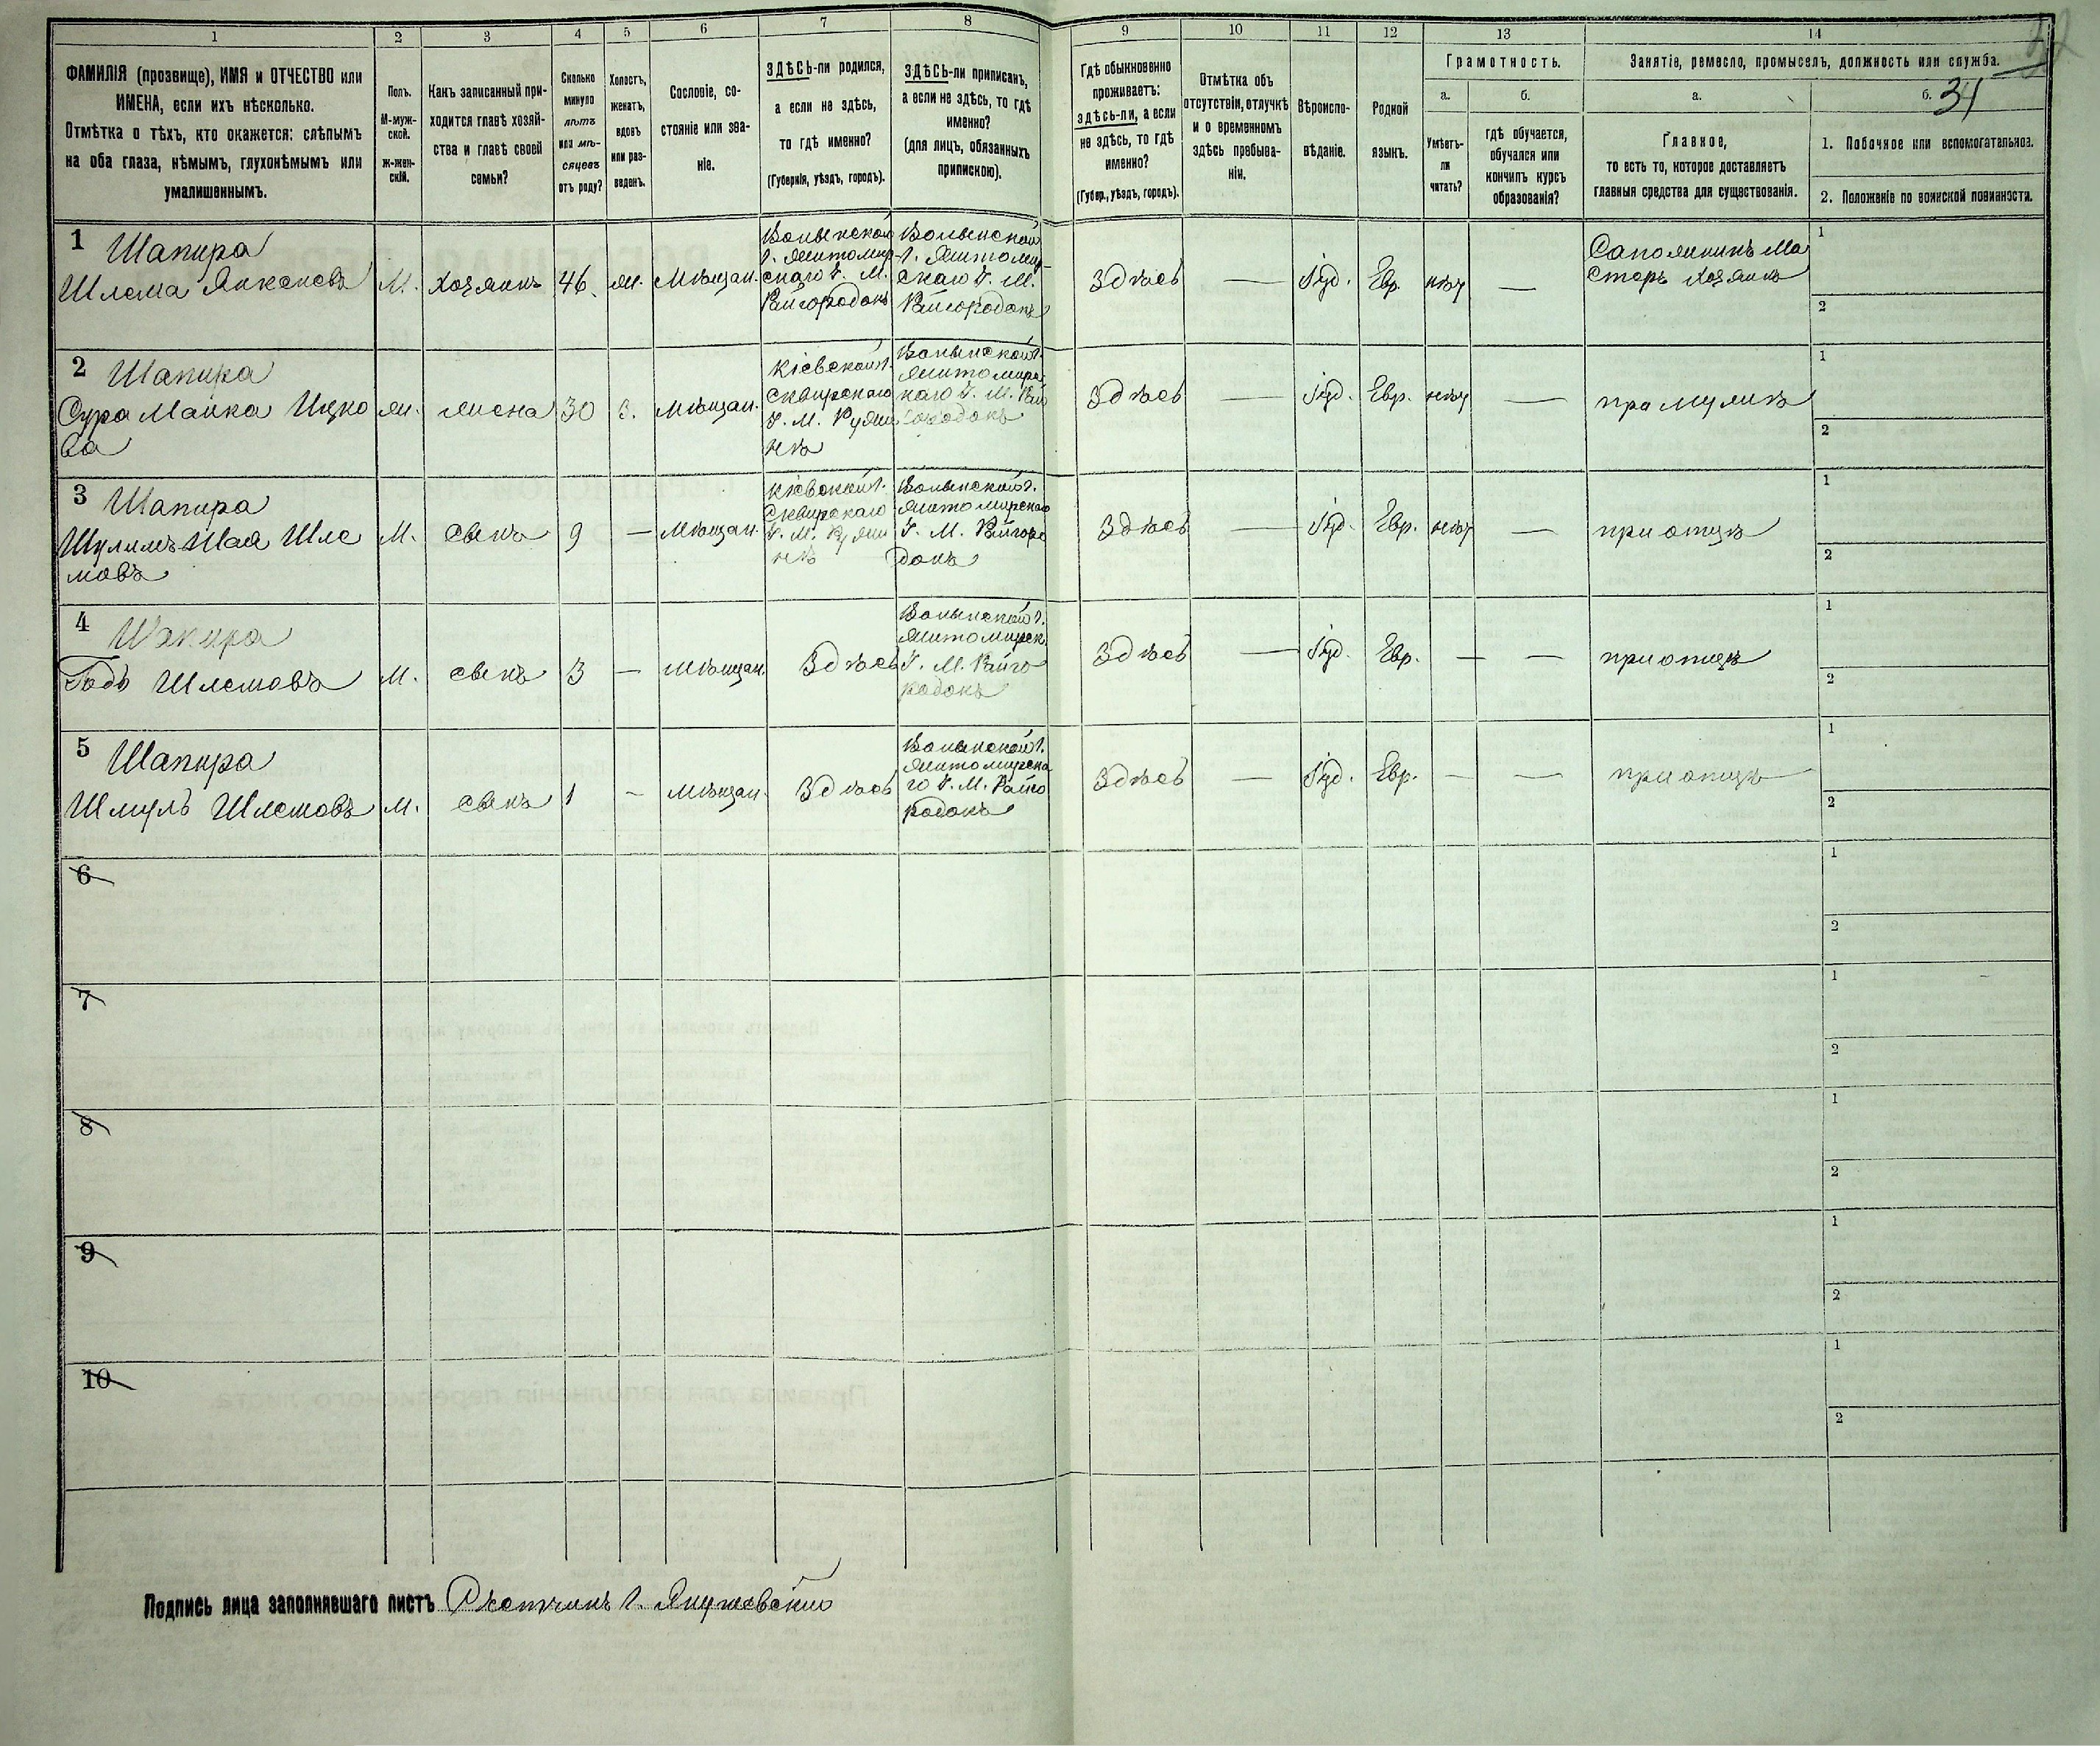 1 2 3 4 5 6 7 8 9 10 11 12 13 14
ФАМИЛІЯ (прозвище), ИМЯ и ОТЧЕСТВО или
ИМЕНА, если ихъ нѣсколько.
Отмѣтка о тѣхъ, кто окажется: слѣпымъ
на оба глаза, нѣмымъ, глухонѣмымъ или
умалишеннымъ.
Полъ.
М-муж-
ской.
Ж-жен-
скій.
Какъ записанный при-
ходится главѣ хозяй-
ства и главѣ своей
семьи?
Сколько
минуло
лѣтъ
или мѣ-
сяцевъ
отъ роду?
Холостъ,
женатъ,
вдовъ
или раз-
веденъ.
Сословіе, со-
стояніе или зва-
ніе.
ЗДѢСЬ-ли родился,
а если не здѣсь,
то гдѣ именно?
(Губернія, уѣздъ, городъ).
ЗДѢСЬ-ли приписанъ,
а если не здѣсь, то гдѣ
именно?
(для лицъ, обязанныхъ
припискою).
Гдѣ обыкновенно
проживаетъ:
здѣсь-ли, а если
не здѣсь, то гдѣ
именно?
(Губер., уѣздъ, городъ).
Отмѣтка объ
отсутствіи, отлучкѣ
и о временномъ
здѣсь пребыва-
ніи.
Вѣроиспо-
вѣданіе.
Родной
языкъ.
Грамотность.
а.
Умѣетъ-
ли
читать?
б.
гдѣ обучается,
обучался или
кончилъ курсъ
образованія?
Занятіе, ремесло, промыселъ, должность или служба.
а.
Главное,
то есть то, которое доставляетъ
главныя средства для существованія.
б.
31
1. Побочное или вспомогательное.
2. Положеніе по воинской повинности.
1 Шапира
Шлема Янкелевъ
М.
хозяинъ
46
ж.
Мѣщан.
Волынской
г. Житомир
скаго У. М.
Райгородокъ
Волынской
г. Житомир
скаго У. М.
Райгородокъ
Здѣсь
—
Іуд.
Евр.
нѣт
—
Сапожникъ Ма
стеръ Хозяинъ
1
2
2 Шапира
Сура Малка Ицко
ва
ж.
жена
30
З.
Мѣщан.
Кіевской г.
Сквирскаго
У. М. Ружи
нъ
Волынской г.
Житомирс
каго У. М. Рай
городокъ
Здѣсь
—
Іуд.
Евр.
нѣт
—
при мужѣ
1
2
3 Шапира
Шулимъ Шая Шле
мовъ
М.
сынъ
9
—
Мѣщан.
Кіевской г.
Сквирскаго
У. М. Ружи
нъ
Волынской г.
Житомирскаго
У. М. Райгоро
докъ
Здѣсь
—
Іуд.
Евр.
нѣт
—
при отцѣ
1
2
4 Шапира
Годъ Шлемовъ
М.
сынъ
3
—
Мѣщан.
Здѣсь
Волынской г.
Житомирск.
У. М. Райго
родокъ
Здѣсь
—
Іуд.
Евр.
—
—
при отцѣ
1
2
5 Шапира
Шмуль Шлемовъ
М.
сынъ
1
—
Мѣщан.
Здѣсь
Волынской г.
Житомирска
го У. М. Райго
родокъ
Здѣсь
—
Іуд.
Евр.
—
—
при отцѣ
1
2
6
1
2
7
1
2
8
1
2
9
1
2
10
1
2
Подпись лица заполнявшаго листъ Счетчикъ